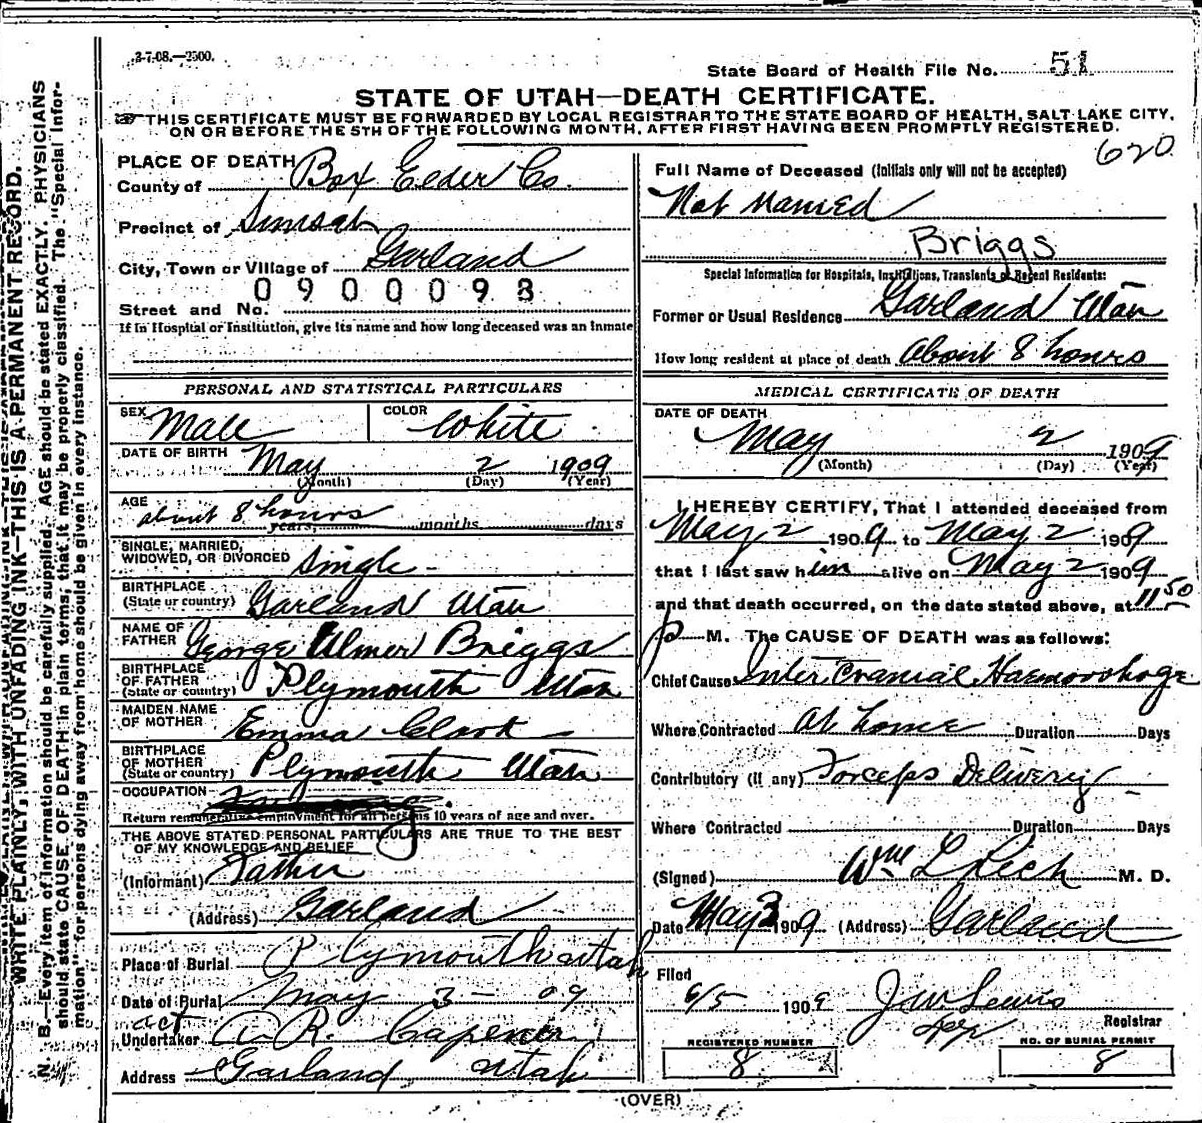 3-7-08.—2500.
State Board of Health File No. 51
STATE OF UTAH—DEATH CERTIFICATE.
THIS CERTIFICATE MUST BE FORWARDED BY LOCAL REGISTRAR TO THE STATE BOARD OF HEALTH, SALT LAKE CITY,
ON OR BEFORE THE 5TH OF THE FOLLOWING MONTH, AFTER FIRST HAVING BEEN PROMPTLY REGISTERED.
620
PLACE OF DEATH
County of Box Elder Co.
Precinct of
City, Town or Village of Garland
0900098
Street and No.
If in Hospital or Institution, give its name and how long deceased was an inmate
Full Name of Deceased (Initials only will not be accepted)
Not Named
Briggs
Special Information for Hospitals, Institutions, Transients or Recent Residents:
Former or Usual Residence Garland Utah
How long resident at place of death About 8 hours
PERSONAL AND STATISTICAL PARTICULARS
SEX Male COLOR White
DATE OF BIRTH May 2 1909
(Month) (Day) (Year)
AGE about 8 hours
years months days
SINGLE, MARRIED,
WIDOWED, OR DIVORCED Single
BIRTHPLACE
(State or country) Garland Utah
NAME OF
FATHER George Ulmer Briggs
BIRTHPLACE
OF FATHER
(State or country) Plymouth Utah
MAIDEN NAME
OF MOTHER Emma Clark
BIRTHPLACE
OF MOTHER
(State or country) Plymouth Utah
OCCUPATION
Return remunerative employment for all persons 10 years of age and over.
THE ABOVE STATED PERSONAL PARTICULARS ARE TRUE TO THE BEST
OF MY KNOWLEDGE AND BELIEF
(Informant) Father
(Address) Garland
Place of Burial Plymouth Utah
Date of Burial May 3 - 09
act
Undertaker A. R. Capener
Address Garland Utah
MEDICAL CERTIFICATE OF DEATH
DATE OF DEATH
May 2 1909
(Month) (Day) (Year)
I HEREBY CERTIFY, That I attended deceased from
May 2 1909 to May 2 1909
that I last saw him alive on May 2 1909
and that death occurred, on the date stated above, at 11 50
P M. The CAUSE OF DEATH was as follows:
Chief Cause Inter Cranial Haemorrhage
Where Contracted At home Duration Days
Contributory (if any) Forceps Delivery
Where Contracted Duration Days
(Signed) Wm L Rich M. D.
Date May 3 1909 (Address) Garland
Filed
6/5 1909 J W Lewis
Registrar
REGISTERED NUMBER
8
NO. OF BURIAL PERMIT
8
(OVER)
WRITE PLAINLY, WITH UNFADING INK—THIS IS A PERMANENT RECORD.
N. B.—Every item of information should be carefully supplied. AGE should be stated EXACTLY. PHYSICIANS
should state CAUSE OF DEATH in plain terms, that it may be properly classified. The "Special Infor-
mation" for persons dying away from home should be given in every instance.